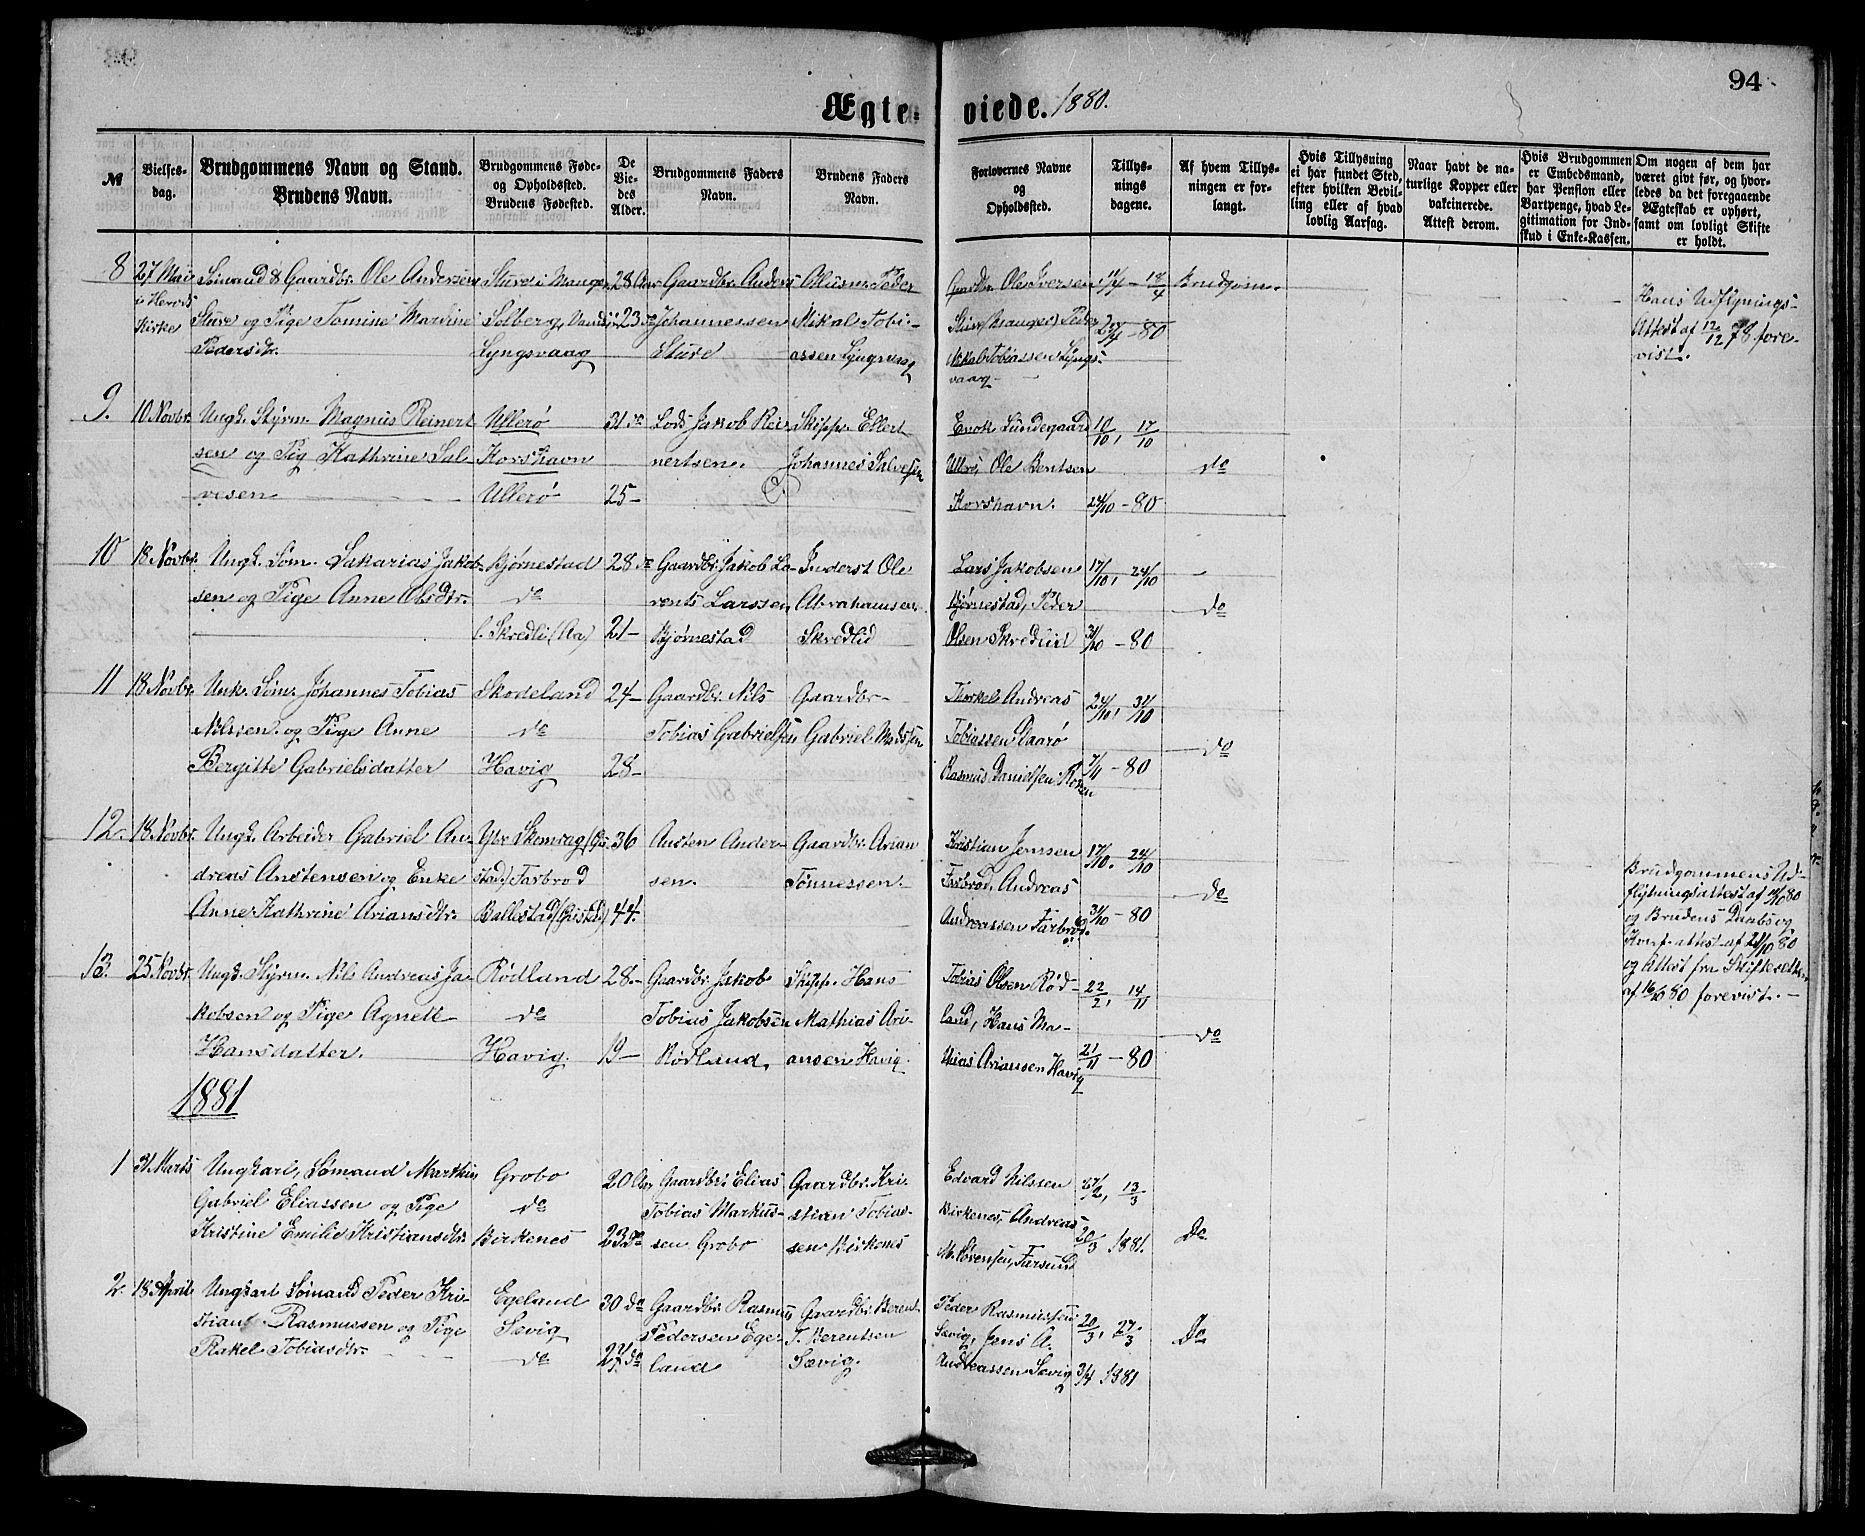 94
Ægteviede. 1880.
№
Vielses-
dag.
Brudgommens Navn og Stand.
Brudens Navn.
Brudgommens Føde-
og Opholdssted.
Brudens Fødested.
De
Vie-
des
Alder.
Brudgommens Faders
Navn.
Brudens Faders
Navn.
Forlovernes Navne
og
Opholdssted.
Tillys-
nings
dagene.
Af hvem Tillys-
ningen er for-
langt.
Hvis Tillysning
ei har fundet Sted,
efter hvilken Bevil-
ling eller af hvad
lovlig Aarsag.
Naar havt de na-
turlige Kopper eller
vakcinerede.
Attest derom.
Hvis Brudgommen
er Embedsmand,
har Pension eller
Vartpenge, hvad Le-
gitimation for Ind-
skud i Enke-Kassen.
Om nogen af dem har
været givt før, og hvor-
ledes da det foregaaende
Ægteskab er ophørt,
samt om lovligt Skifte
er holdt.
8
27 Mai
i Herods
Kirke
Sømand & Gaardbr. Ole Andersen
Sture og Pige Tomine Mardine
Pedersdtr.
Sture i Manger
Solberg, Vandsø
Lyngsvaag
28 Aar
23 do
Gaardbr. Anders
Johannessen
Sture
Husm. Peder
Mikal Tobi-
assen Lyngsvaag
Gaardbr. Ole Iversen
Sture (Manger) Peder
Mikal Tobiassen Lyngs-
vaag
11/4 - 18/4
25/4 - 80
Brudgom.
Hans Udflytnings-
Attest af 12/12 78 fore-
vist.
9.
10 Novbr.
Ungk. Styrm. Magnus Reinert
sen og Pig Kathrine Sal-
vesen
Ullerø
Korshavn
Ullerø
31 do
25 -
Lods Jakob Rei-
nertsen.
Skipp. Ellert
Johannes Salvesen
(?)
Enok Lundegaard
Ullerø, Ole Bentsen
Korshavn.
10/10, 17/10
24/10 - 80
do
10
18 Novbr.
Ungk. Søm. Sakarias Jakob-
sen og Pige Anne Olsdtr.
Bjørnestad
do
f. Skredli (Aa)
28 do
21 -
Gaardbr. Jakob Lo-
rents Larssen
Bjørnestad
Inderst Ole
Abrahamsen
Skredlid
Lars Jakobsen
Bjørnestad, Peder
Olsen Skredlid
17/10, 24/10
31/10 - 80
do
11
18 Novbr.
Unk. Søm. Johannes Tobias
Nilssen og Pige Anne
Bergitte Gabrielsdatter
Skodeland
do
Havig
24 -
28 -
Gaardbr. Nils
Tobias Gabrielsen
Gaardbr.
Gabriel Madssen
Thorkel Andreas
Tobiassen Daarø
Rasmus Danielsen
24/10, 31/10
7/11 - 80
do
12.
18 Novbr.
Ungk. Arbeider Gabriel An-
dreas Anstensen og Enke
Anne Kathrine Ariansdtr.
Farbrod
Ballestad (Qvistad)
36
44.
Austen Ander-
sen.
Gaardbr. Arian
Tønnessen.
Kristian Jenssen
Farbrod, Andreas
Andreassen Farbrod.
17/10. 24/10
31/10 - 80
do
Brudgommens Ud-
flytningsattest af 11/10 80
og Brudens Daabs og
Konf. attest af 21/10 80
og Attest fra Skifteretten
af 16/10 80 forevist. -
13.
25 Novbr.
Ungk. Styrm. Nils Andreas Ja-
kobsen og Pige Agnete
Hansdatter.
Rødland
do
Havig.
28. -
19 -
Gaardbr. Jakob
Tobias Jakobsen
Rødland.
Skipp. Hans
Mathias Ari-
ansen Havig.
Tobias Olsen Rød-
land, Hans Ma-
thias Ariansen Havig
22/2, 14/11
21/11 - 80
do
1881
1
31 Marts
Ungkarl, Sømand Markus
Gabriel Eliassen og Pige
Kristine Emilie Kristiansdtr.
Grobo
do
Birkenes
20 Aar
23 do
Gaardbr. Elias
Tobias Markus-
sen Grobo
Gaardbr. Kri-
stian Tobias-
sen Birkenes
Edvard Nilssen
Birkenes, Andreas
M. Sørensen, Farsund
27/2, 13/3
20/3 1881.
Do
2.
18 April
Ungkarl Sømand Peder Kri-
stian Rasmussen og Pige
Rakel Tobiasdtr.
Egeland
Sævig
do
30 do
27 do
Gaardbr. Rasmus
Pedersen Ege-
land
Gaardbr. Berent
T. Berentsen
Sævig.
Peder Rasmussen
Sævig, Jens A.
Andreassen Sævig
20/3, 27/3
3/4 1881
Do